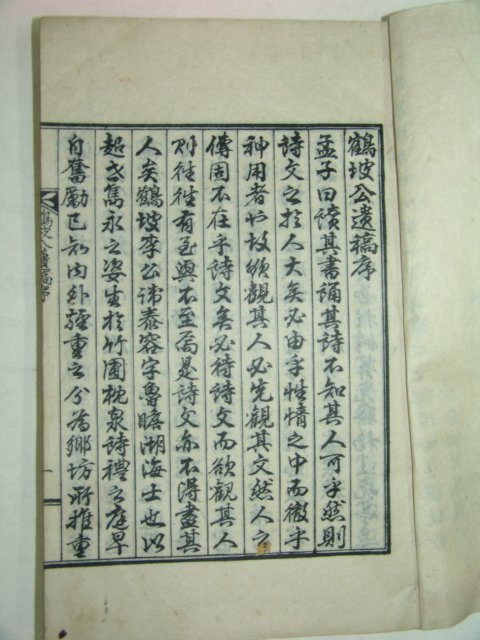 鶴坡公遺稿序
孟子曰讀其書誦其詩不知其人可乎然則
詩文之於人大矣必由乎性情之中而徹乎
神用者也故欲觀其人必先觀其文然人之
傳固不在乎詩文矣必待詩文而欲觀其人
則往往有至與不至焉是詩文亦不得盡其
人矣鶴坡李公諱泰容字魯瞻湖海士也以
超世雋永之姿生於竹圃枕泉詩禮之庭早
自奮勵已知內外輕重之分爲鄉坊所推重
鶴坡公遺稿序
一